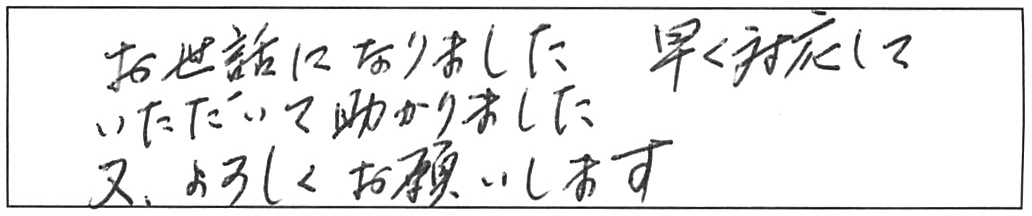 お世話になりました 早く対応して
いただいて助かりました
又、よろしくお願いします